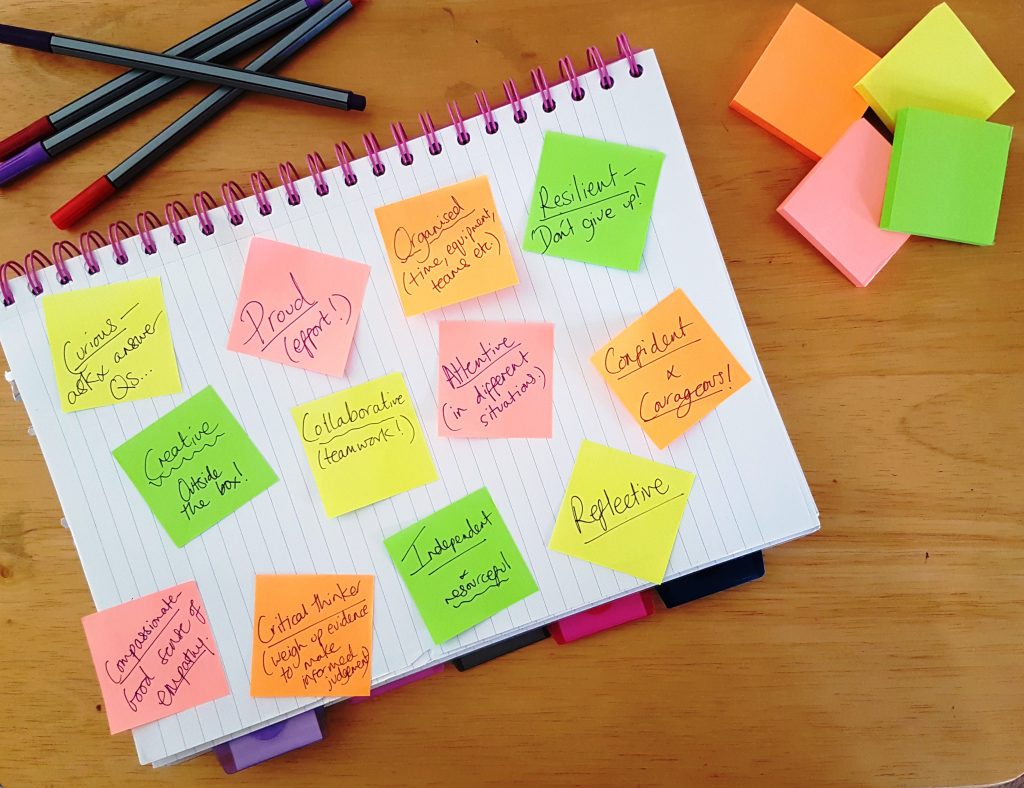 Curious –
ask & answer
Qs...
Proud
(effort!)
Organised
(time, equipment,
teams etc)
Resilient –
Don't give up!
Creative
Outside
the box!
Collaborative
(teamwork!)
Attentive
(in different
situations!)
Confident
&
Courageous!
Compassionate –
Good sense of
empathy!
Critical thinker
(weigh up evidence
to make
informed
judgement)
Independent
&
resourceful
Reflective